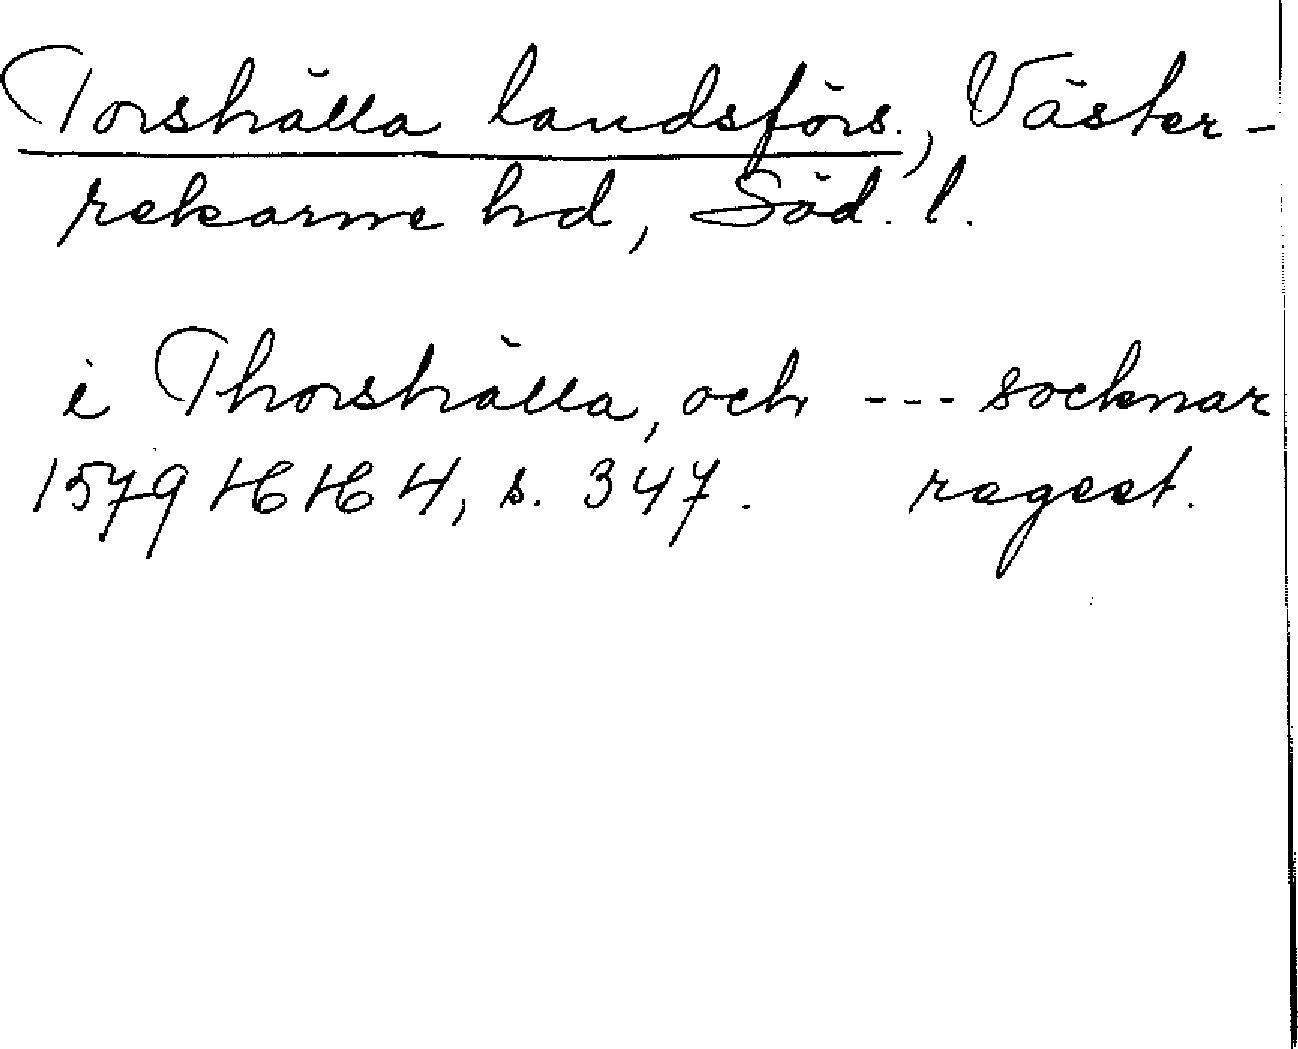 Torshälla landsförs., Väster-
rekarne hd, Söd. l.
i Thorshälla, och --- socknar
1579 HH 4, s. 347. regest.